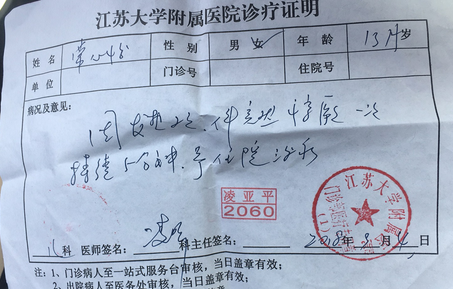 江苏大学附属医院诊疗证明
姓名 性别 男 女 年龄 13月岁
单位 门诊号 住院号
病况及意见：
因发热 惊厥一次
持续5-6分钟 予住院治疗
凌亚平
2060
江苏大学附属医院
儿科 医师签名： 科主任签名： 2018年 月 日
注：1、门诊病人至一站式服务台审核，当日盖章有效；
2、出院病人至医务处审核，当日盖章有效；